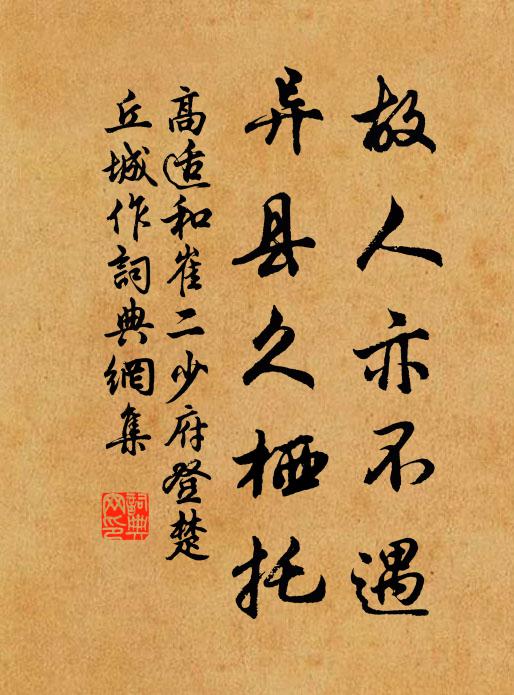 故人亦不遇
异县久栖托
高适和崔二少府登楚
丘城作詞典網集
詞典網印